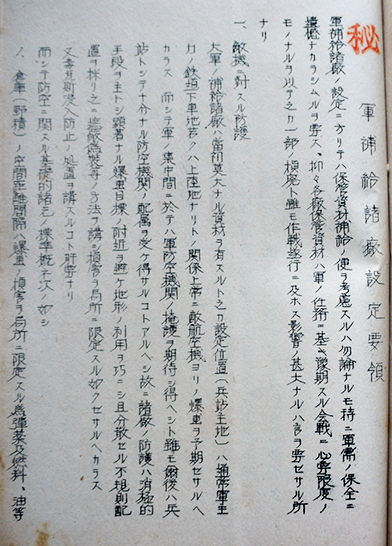 秘
軍補給諸廠設定要領
軍補給諸廠ノ設定ニ方リテハ保管資材補給ノ便ヲ考慮スルハ勿論ナルモ特ニ軍需ノ保全ニ
遺憾ナカラシムルヲ要ス、抑々各廠保管資材ハ軍ノ作戦ニ基キ豫期スル会戦ニ必要限度ノ
モノナルヲ以テ之カ一部ノ損廃ト雖モ作戦遂行ニ及ホス影響ノ甚大ナルハ言ヲ要セサル所
ナリ
一、敵機ニ對スル防護
大軍ノ補給諸廠ハ當初莫大ナル資材ヲ有スルト之カ設定位置(兵站主地)ハ通常軍主
力ノ鉄道下車地若クハ上陸地ナリトノ関係上常ニ敵航空機ヨリノ爆撃ヲ予期セサルヘ
カラス 而シテ軍ノ集中間ニ於テハ軍防空機関ノ掩護ヲ期待シ得ヘシト雖モ爾後ハ兵
站トシテ十分ナル防空機関ノ配属ヲ受ケ得サルコトアルヘシ故ニ諸廠ノ防護ハ有極的
手段ヲ主トシ顕著ナル爆撃目標ノ附近ヲ避ケ地形ノ利用ヲ巧ニシ且分散セル不規則配
置ヲ採リ之ニ遮蔽偽装等ノ方法ヲ講シ損害ヲ局所ニ限定スル如クセサルヘカラス
又毒瓦斯 防止ノ処置ヲ講スルコト肝要ナリ
而シテ防空ニ関スル基礎的諸元ノ標準概ネ次ノ如シ
ノ、倉庫(野積)ノ空間距離間隔ハ爆撃ノ損害ヲ局所ニ限定スル為弾薬及燃料、油等